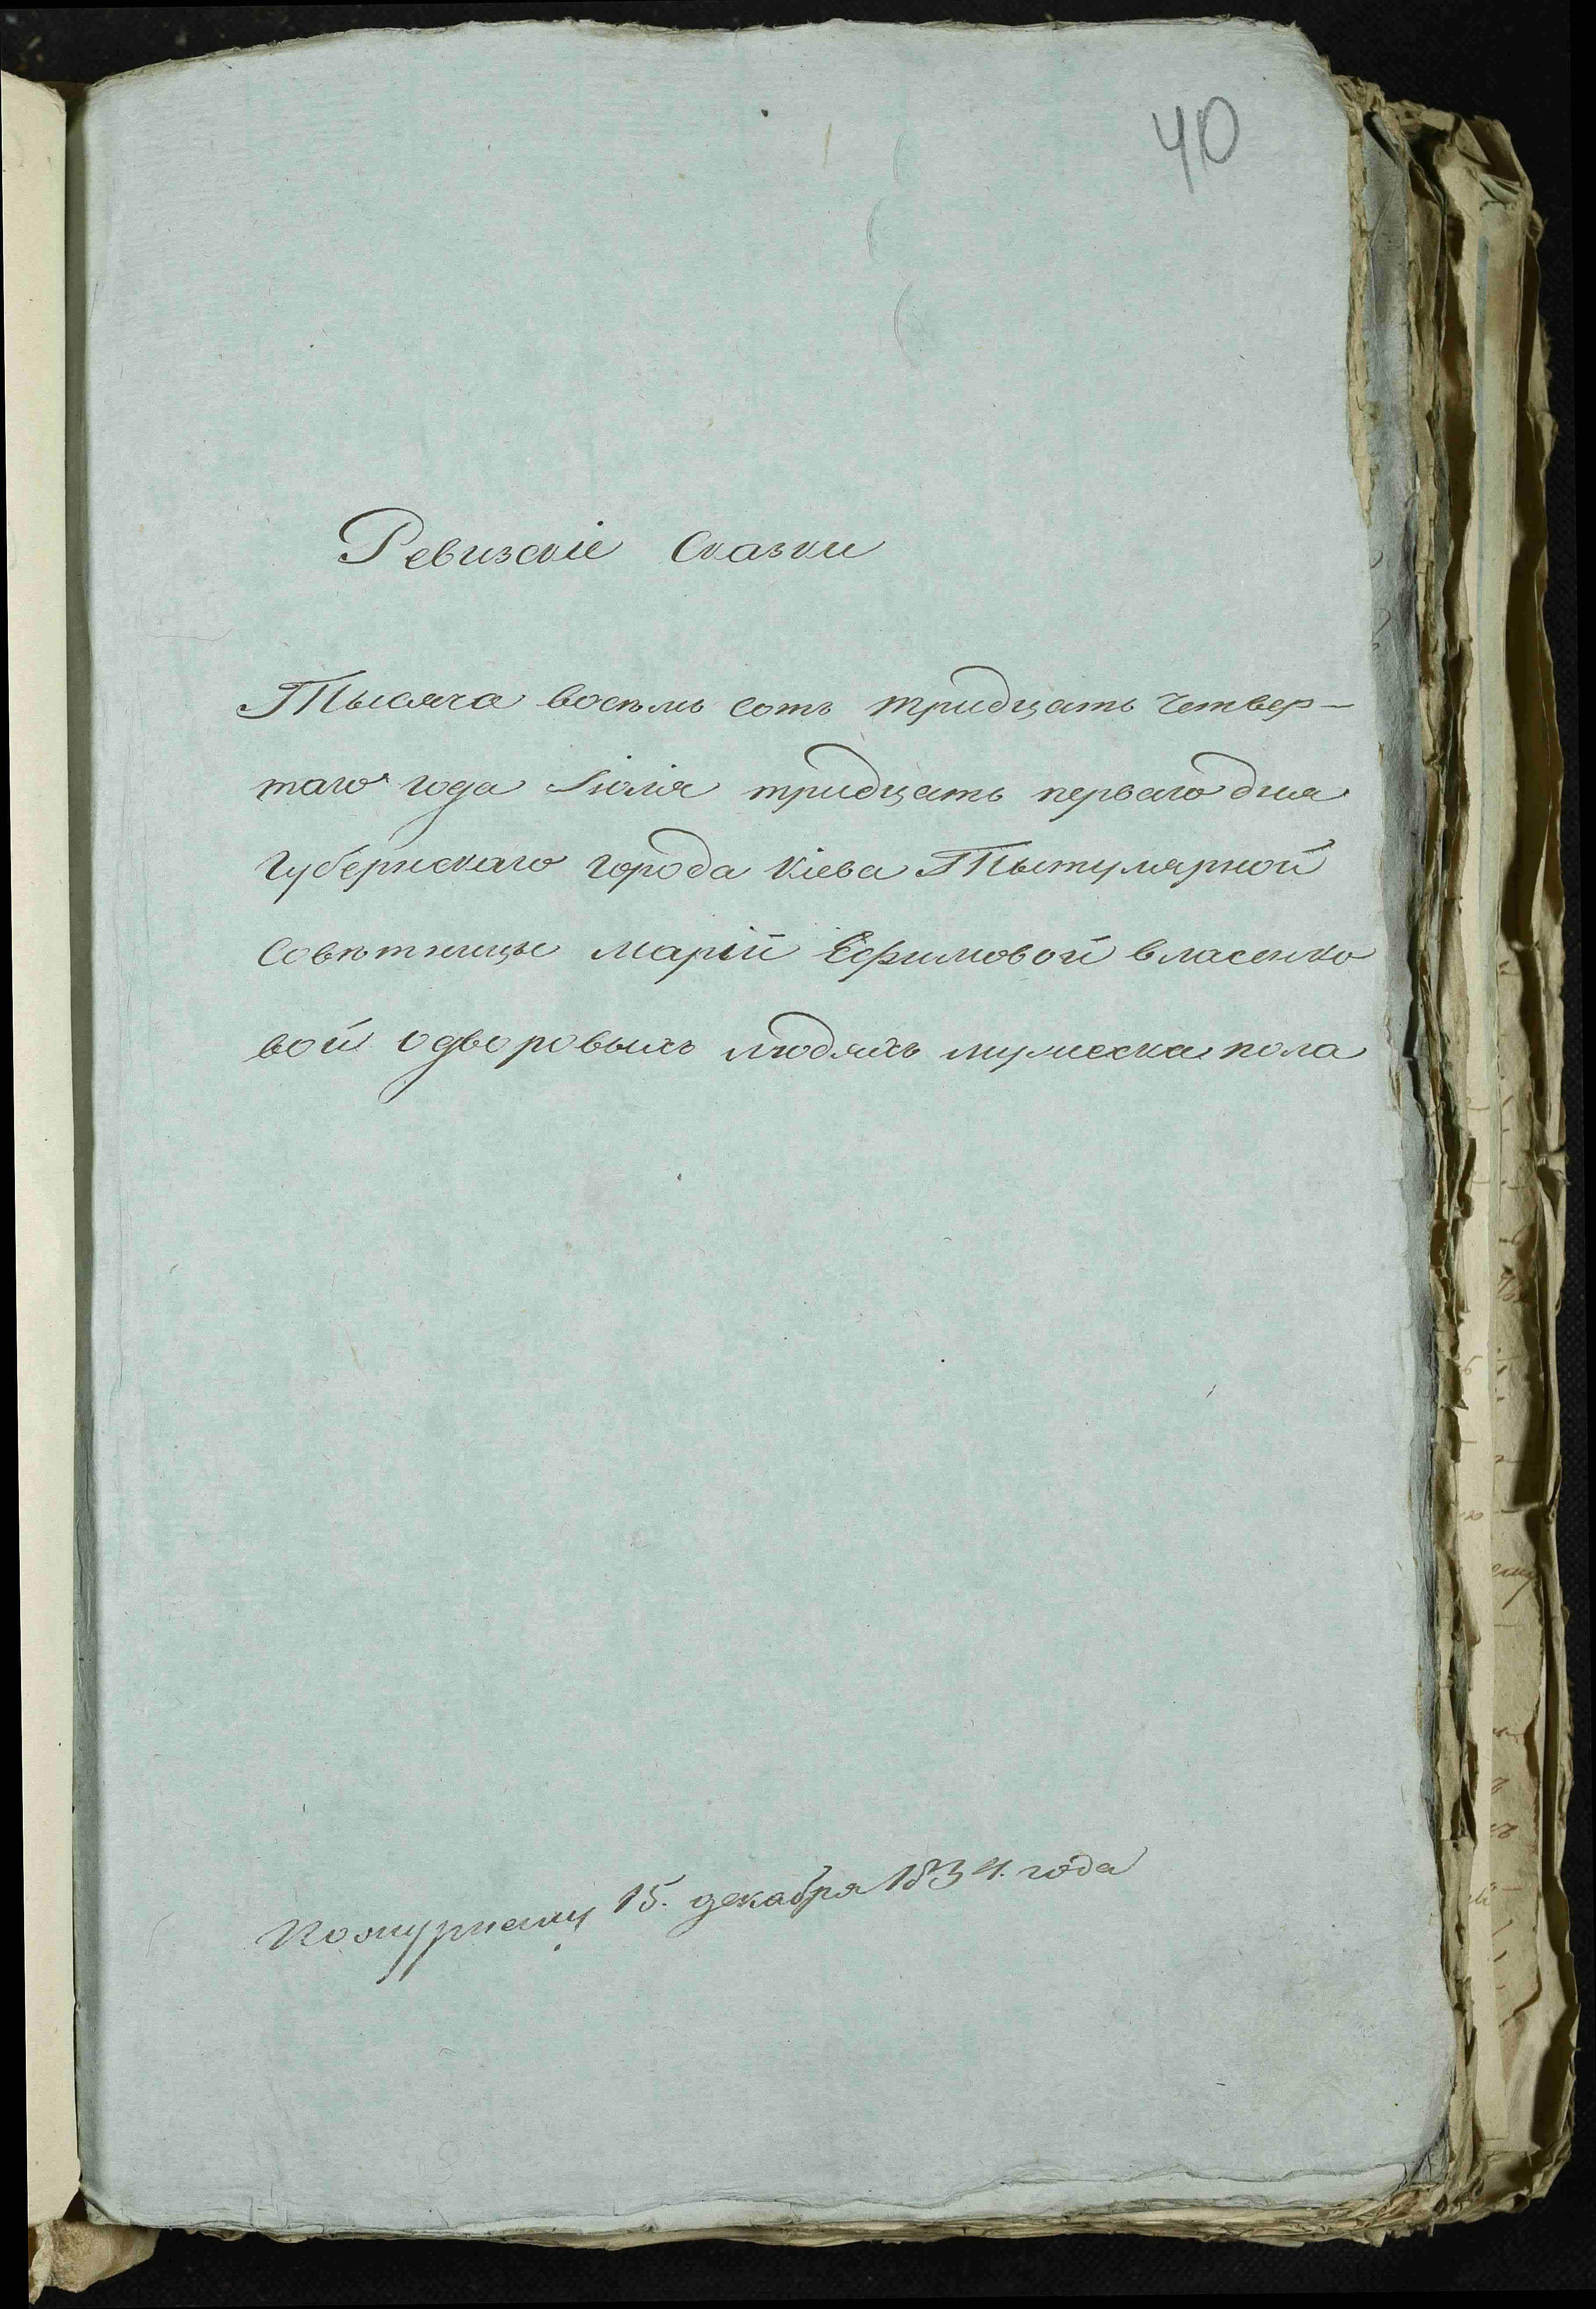 40
Ревизскіе Сказки
Тысяча восемь сотъ тридцать четвер-
таго года Іюля тридцать перваго дня
Губернскаго города Кіева Тытулярной
Совѣтницы Маріи Ефимовой Власенко
вой одворовыхъ людяхъ мужеска пола
15. декабря 1834. года